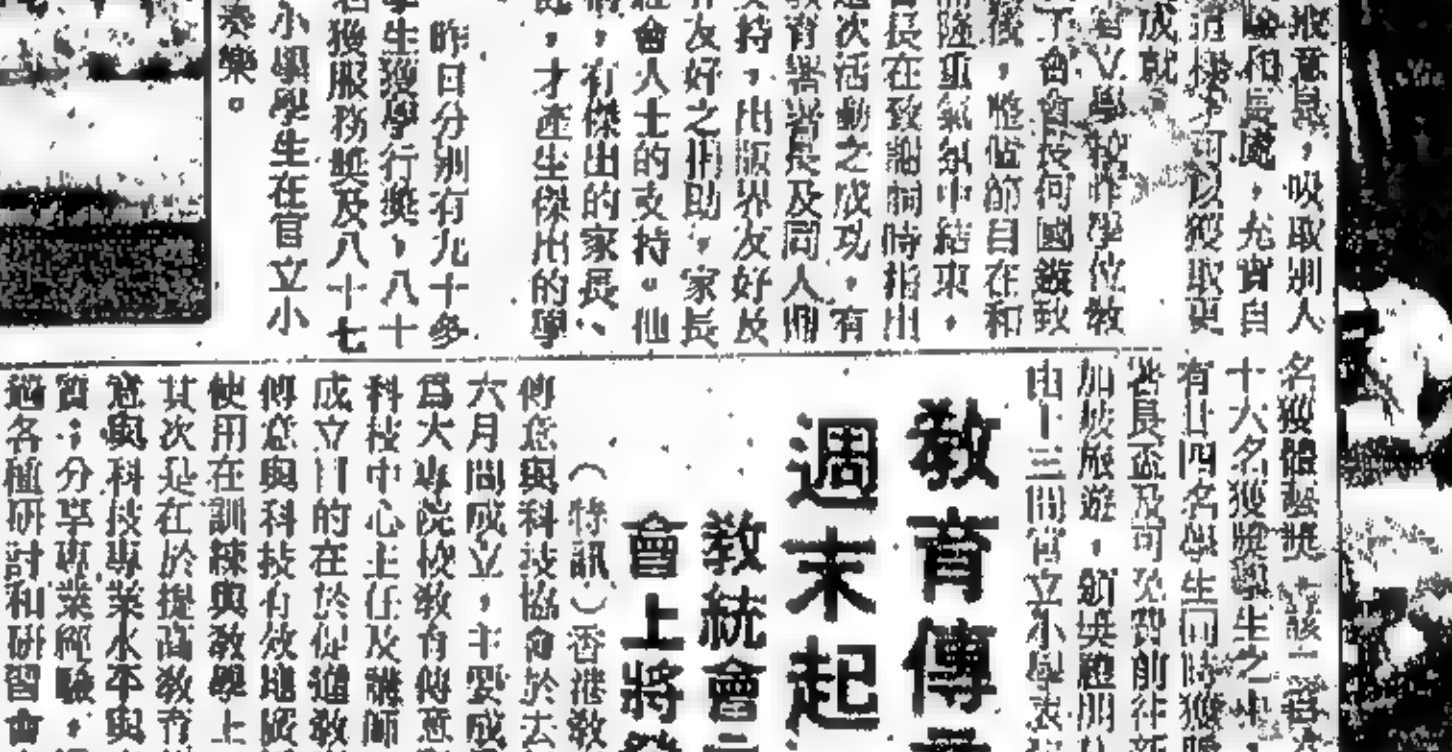 推意見，吸取別人
和長處，充實自
這樣才可以獲取更
成就
立學校昨學位教
了會會長何國鏇致
後，整個節目在和
而隆重氣氛中結束。
會長在致謝詞時指出
這次活動之成功，有
教育署署長及同人鼎
支持，出版界友好及
界友好之捐助，家長
社會人士的支持。他
稱，有傑出的家長、
，才產生傑出的學
昨日分別有九十多
學生獲學行獎，八十
名獲服務獎及八十七
小學學生在官立小
奏樂。
名獲體藝獎
十六名獲獎學生之中
有廿四名學生同時獲
署長盃及可免費前往新
加坡旅遊，頒獎禮
由十三間官立小學表
教育傳
週末起
教統會
會上將
（特訊）香港教
傳意與科技協會於去
六月間成立，主要成
爲大專院校教育傳意
科技中心主任及講師
成立目的在於促進教
傳意與科技有效地
使用在訓練與教學上
其次是在於提高教育
意與科技專業水平與
質；分享專業經驗，
過各種研討和研習會